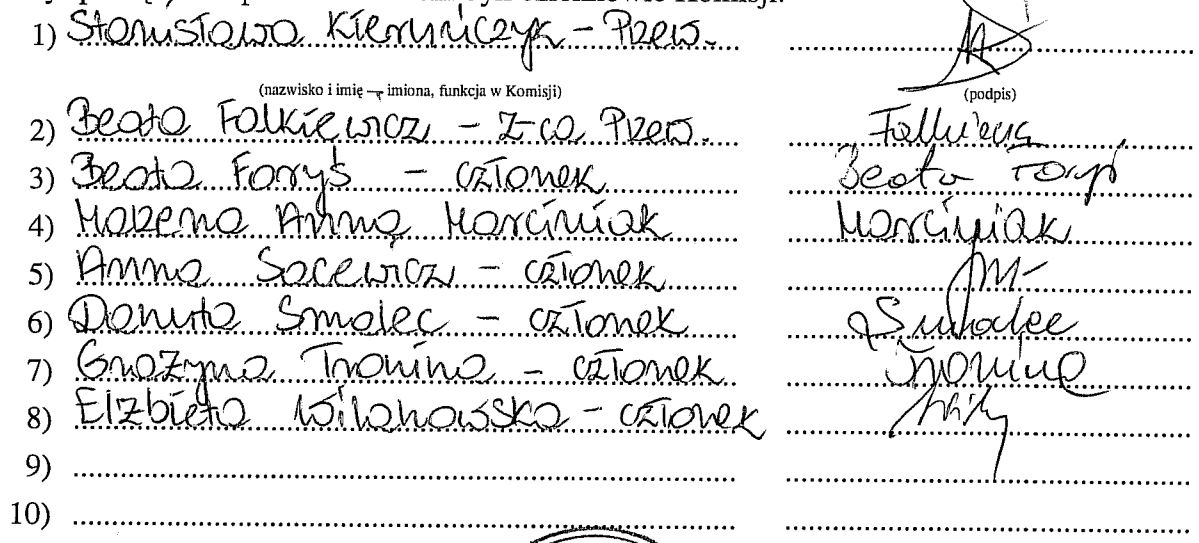 członkowie Komisji:
1) Stanisława Kiermiczyk - Przew.
(nazwisko i imię – imiona, funkcja w Komisji) (podpis)
2) Beata Falkiewicz - Z-ca Przew. Falkiewicz
3) Beata Foryś - członek Beata Foryś
4) Marzena Anna Marciniak Marciniak
5) Anna Sacewicz - członek
6) Danuta Smalec - członek Smalec
7) Grażyna Tronina - członek Tronina
8) Elżbieta Wilanowska - członek
9)
10)